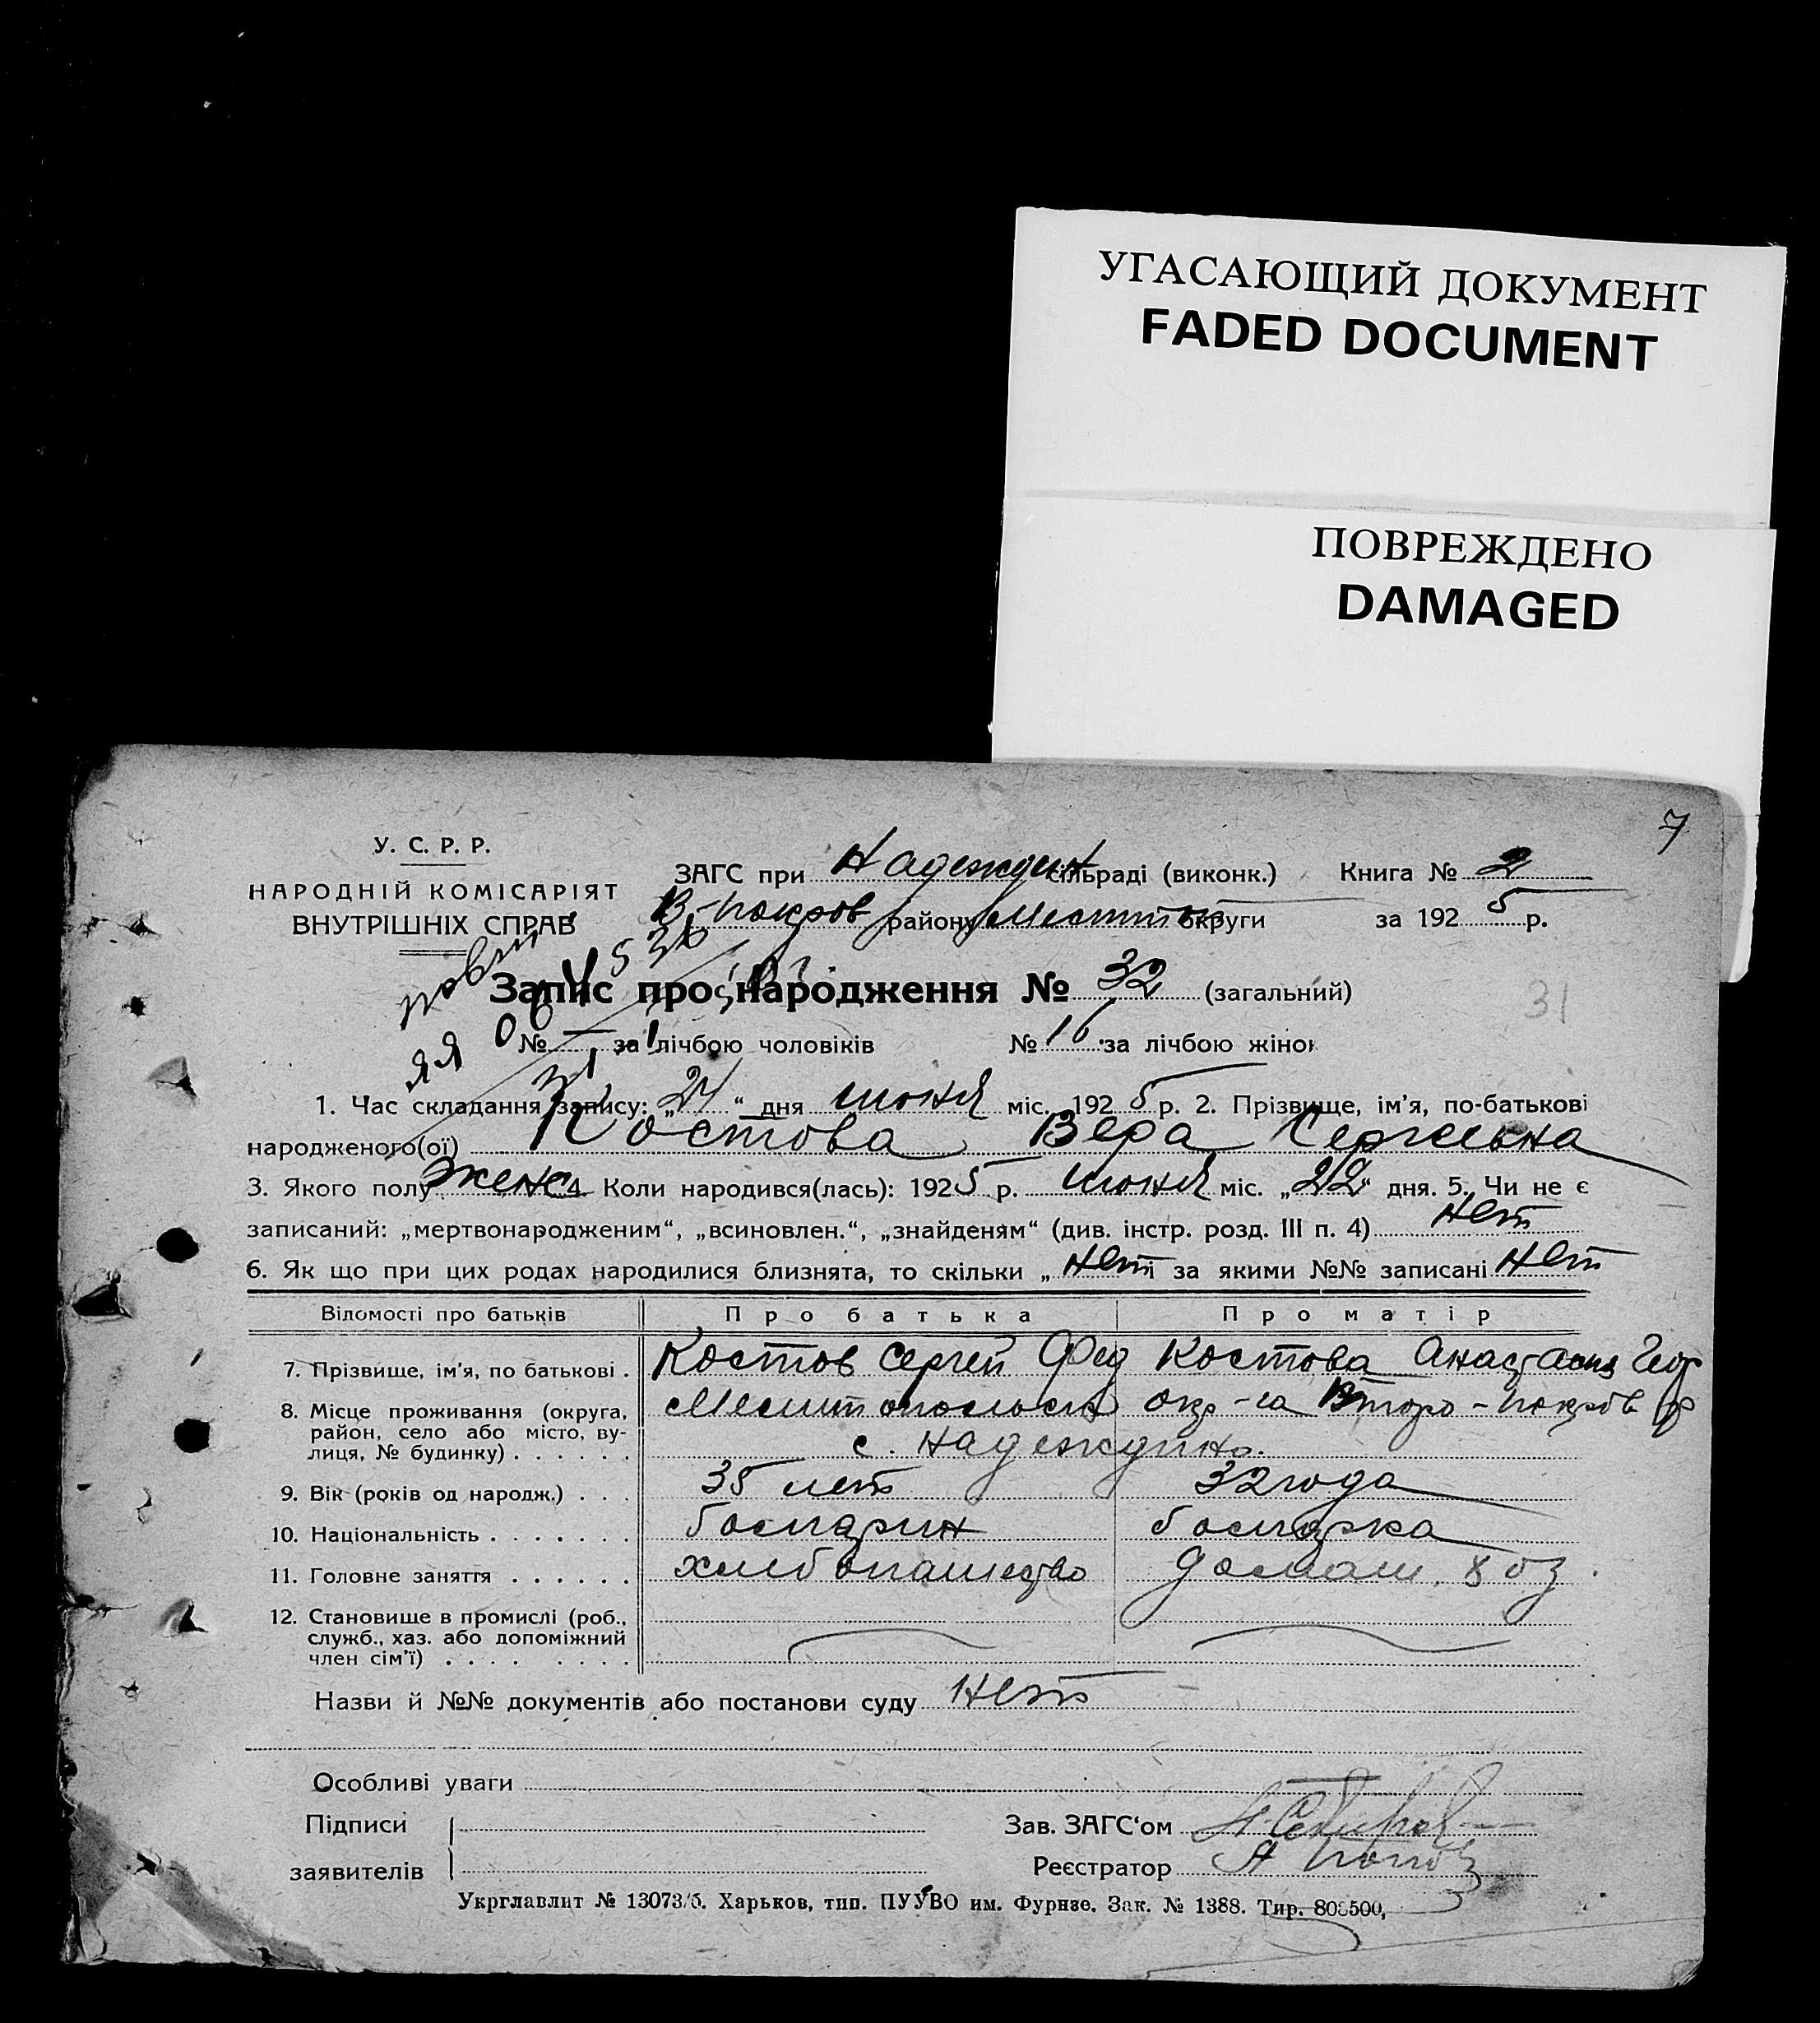 УГАСАЮЩИЙ ДОКУМЕНТ
FADED DOCUMENT
ПОВРЕЖДЕНО
DAMAGED
7
У. С. Р. Р.
НАРОДНІЙ КОМІСАРІЯТ
ВНУТРІШНІХ СПРАВ
ЗАГС при Надеждин сільраді (виконк.) Книга № 2
В-покров району Мелитоп округи за 1925 р.
Запис про народження № 32 (загальний)
31
№ — за лічбою чоловіків № 16 за лічбою жінок
1. Час складання запису: „24“ дня июня міс. 1925 р. 2. Прізвище, ім’я, по-батькові
народженого(ої) Костова Вера Сергеевна
3. Якого полу женс 4. Коли народився(лась): 1925 р. июня міс. „22“ дня. 5. Чи не є
записаний: „мертвонародженим“, „всиновлен.“, „знайденям“ (див. інстр. розд. III п. 4) нет
6. Як що при цих родах народилися близнята, то скільки „ нет і за якими №№ записані нет
Відомості про батьків Про батька Про матір
7. Прізвище, ім’я, по батькові . Костов Сергей Фед Костова Анастасия Геор
8. Місце проживання (округа, район, село або місто, вулиця, № будинку) . . . . . . Мелитопольск окр-га Второ-покров р
с. Надеждино.
9. Вік (років од народж.) . . . 35 лет 32 года
10. Національність . . . . . . . болгарин болгарка
11. Головне заняття . . . . . . хлебопашество домаш. хоз.
12. Становище в промислі (роб.,
служб., хаз. або допоміжний
член сім’ї) . . . . . . . .
Назви й №№ документів або постанови суду нет
Особливі уваги
Підписи
заявителів
Зав. ЗАГС‘ом
Реєстратор А Попов
Укрглавлит № 13073/б. Харьков, тип. ПУУВО им. Фурнзе. Зак. № 1388. Тир. 808500,